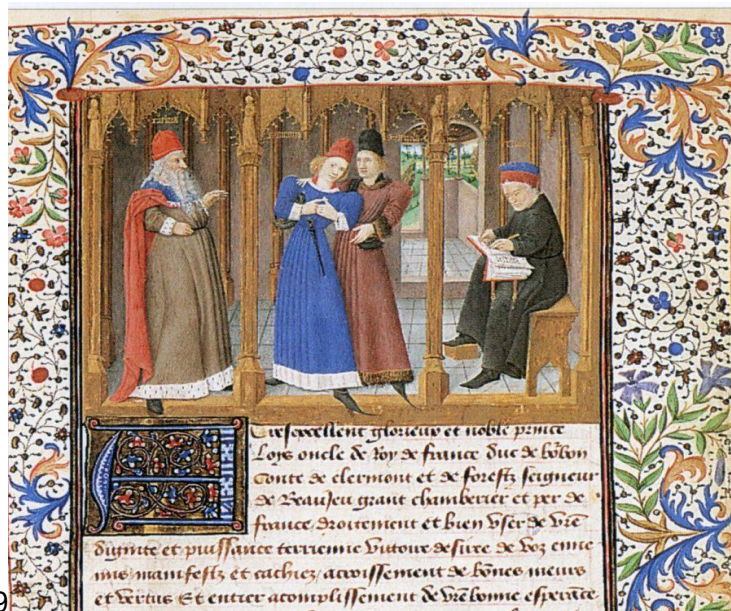 Tresexcellent glorieux et noble prince
Loys oncle de Roy de france duc de bo͂bon
Conte de clermont et de forestz seigneur
de Beaujeu grant chamberier et per de
france droitement et bien vser de vr̃e
dignite et puissance terrienne victoire desiree de voz enne
mis manifestz et cachiez accroissement de bo͂nes meurs
et vertus Et entier acomplissement de vr̃e bonne esperãce
9